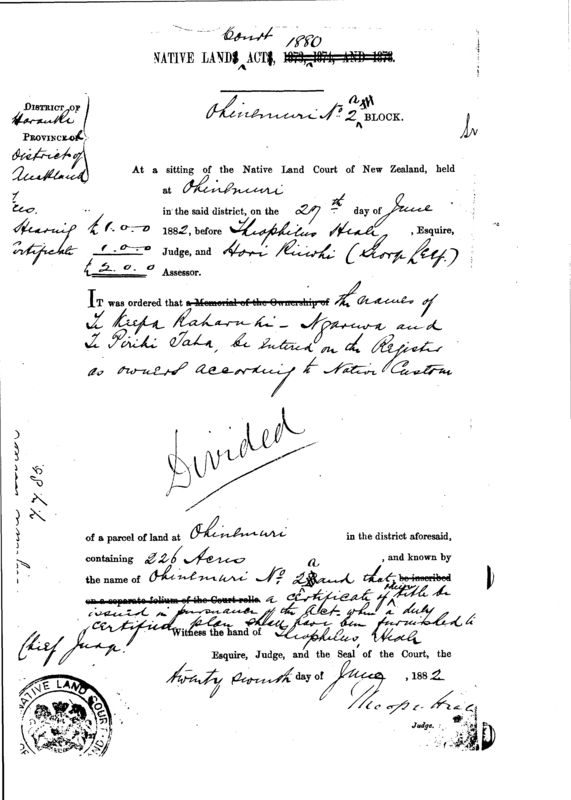 Court 1880
NATIVE LANDS ACTS, 1873, 1874, AND 1878.
Ohinemuri No 2 BLOCK.
DISTRICT OF
Hauraki
PROVINCE OF
District of
Auckland
At a sitting of the Native Land Court of New Zealand, held
at Ohinemuri
in the said district, on the 27th day of June
1882, before Theophilus Heale, Esquire,
Judge, and Hori Ririohi (
Assessor.
Hearing £1.0.0
Certificate 1.0.0
£2.0.0
IT was ordered that a Memorial of the Ownership of the names of
Te Keepa Raharuhi - Ngaruwa and
Te Pirihi Taha, be entered on the Register
as owners according to Native Custom
Divided
of a parcel of land at Ohinemuri in the district aforesaid,
containing 226 Acres, and known by
the name of Ohinemuri No 2 a and that be inscribed
on a separate folium of the Court rolls. a certificate of title be
issued in pursuance of the Act when a duly
certified plan shall have been furnished to
Chief Judge.
Witness the hand of Theophilus Heale
Esquire, Judge, and the Seal of the Court, the
twenty seventh day of June, 1882
Theoph. Heale
Judge.
NATIVE LAND COURT